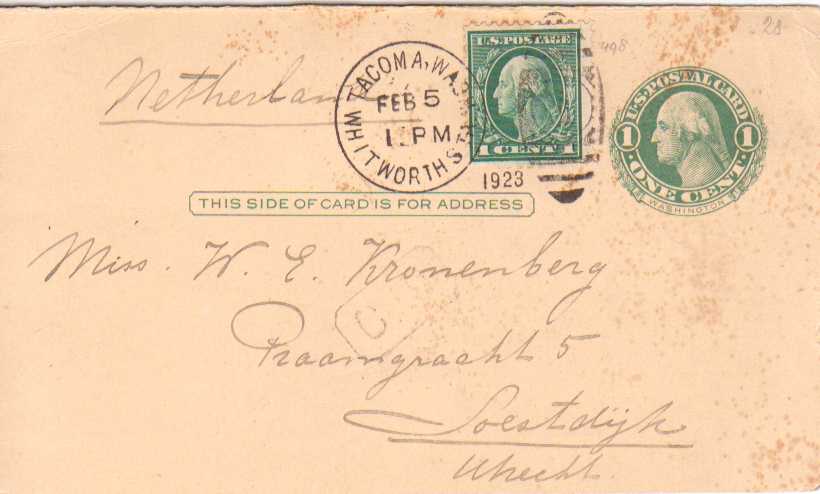 28
498
Netherland
TACOMA, WASH.
WHITWORTH STA.
FEB 5
1 PM
1923
U.S. POSTAGE
1 CENT 1
U.S. POSTAL CARD
1 1
ONE CENT
WASHINGTON
THIS SIDE OF CARD IS FOR ADDRESS
Miss. W. E. Kronenberg
Praamgracht 5
Soestdijk
Utrecht.
C